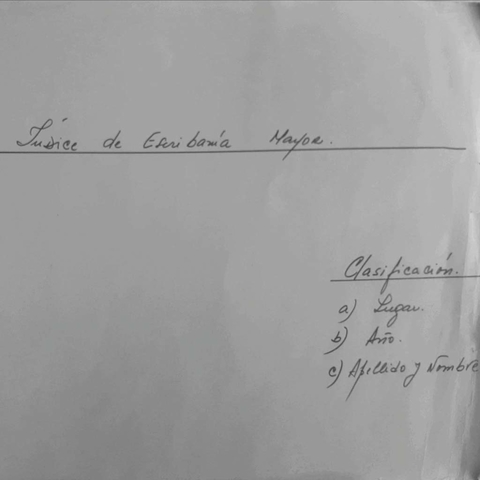 Índice de Escribanía Mayor.
Clasificación.
a) Lugar.
b) Año.
c) Apellido y Nombre